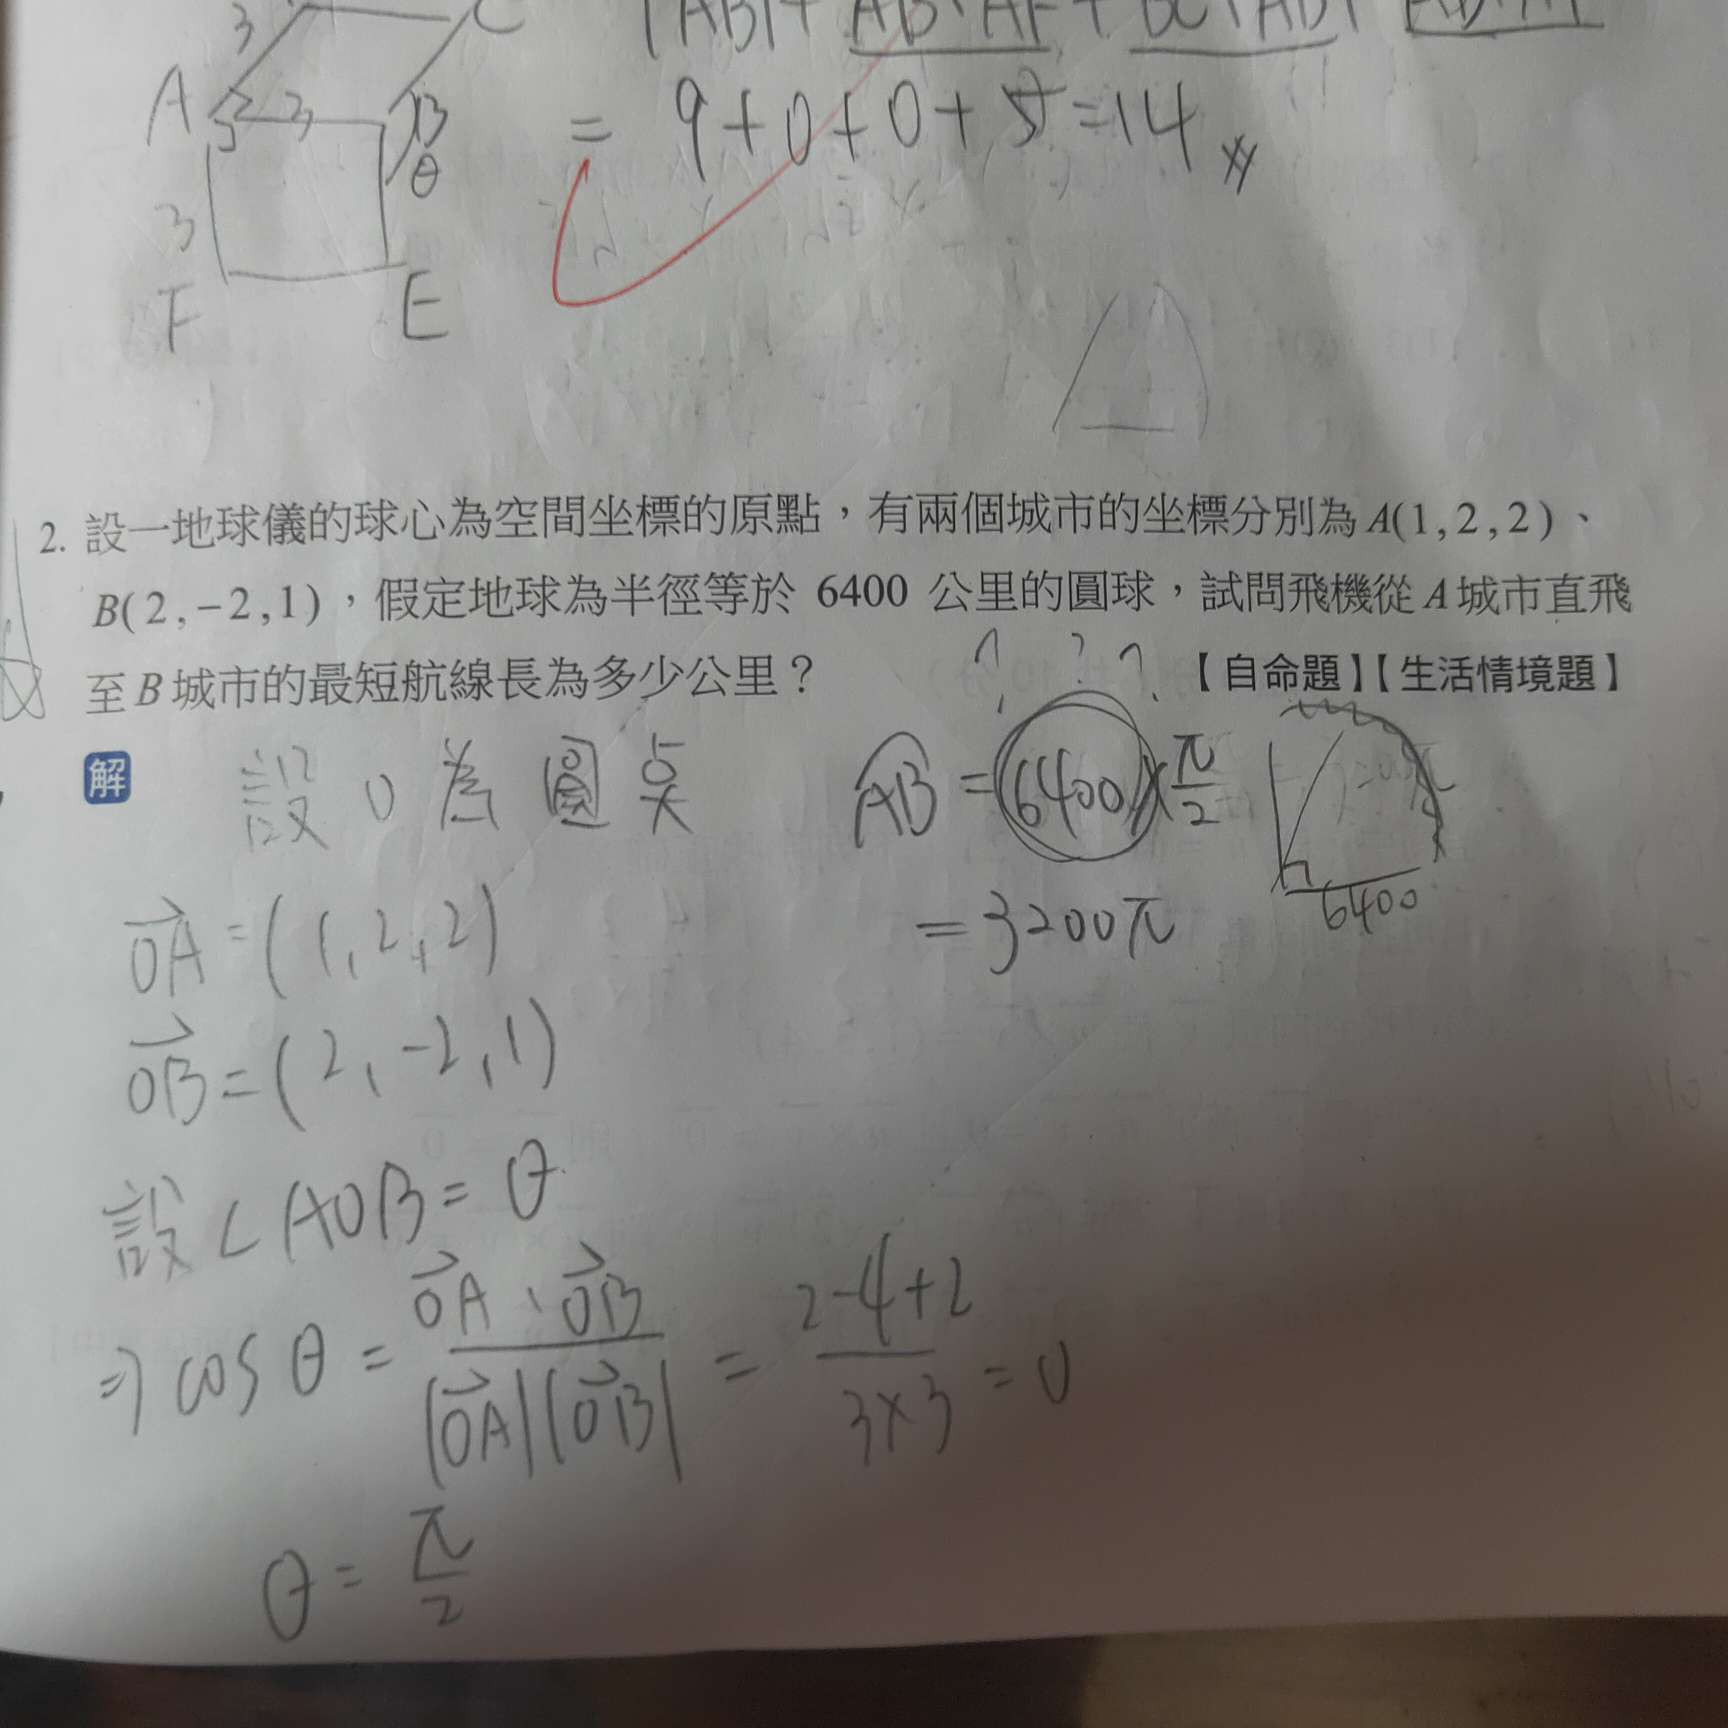 3 C
A 3 B
θ
3
F E
= 9+0+0+5=14
2. 設一地球儀的球心為空間坐標的原點,有兩個城市的坐標分別為A(1,2,2)、
B(2,-2,1),假定地球為半徑等於 6400 公里的圓球,試問飛機從A城市直飛
至B城市的最短航線長為多少公里? 【自命題】【生活情境題】
? ? ?
解 設 O 為圓點 AB = 6400 × π/2
= 3200π
6400
OA = (1,2,2)
OB = (2,-2,1)
設∠AOB = θ
⇒ cos θ = OA·OB / |OA||OB| = 2-4+2 / 3×3 = 0
θ = π/2